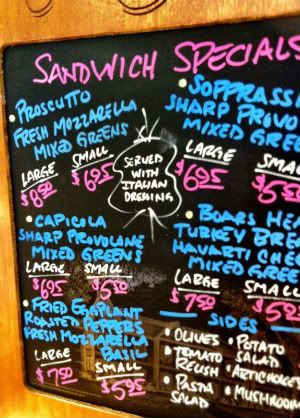 SANDWICH SPECIALS
• PROSCUTTO
FRESH MOZZARELLA
MIXED GREENS
LARGE SMALL
$8.50 $6.95
• CAPICOLA
SHARP PROVOLONE
MIXED GREENS
LARGE SMALL
$6.95 $5.50
• FRIED EGGPLANT
ROASTED PEPPERS
FRESH MOZZARELLA
BASIL
LARGE SMALL
$7.50 $5.95
SERVED
WITH
ITALIAN
DRESSING
• SOPPRASS
SHARP PROVO
MIXED GREEN
LARGE SMAL
$6.95 $5.5
• BOARS HE
TURKEY BRE
HAVARTI CHE
MIXED GREE
LARGE SMAL
$7.50 $5
SIDES
• OLIVES
• TOMATO
RELISH
• PASTA
SALAD
• POTATO
SALAD
• ARTICHOKE
• MUSHROOM